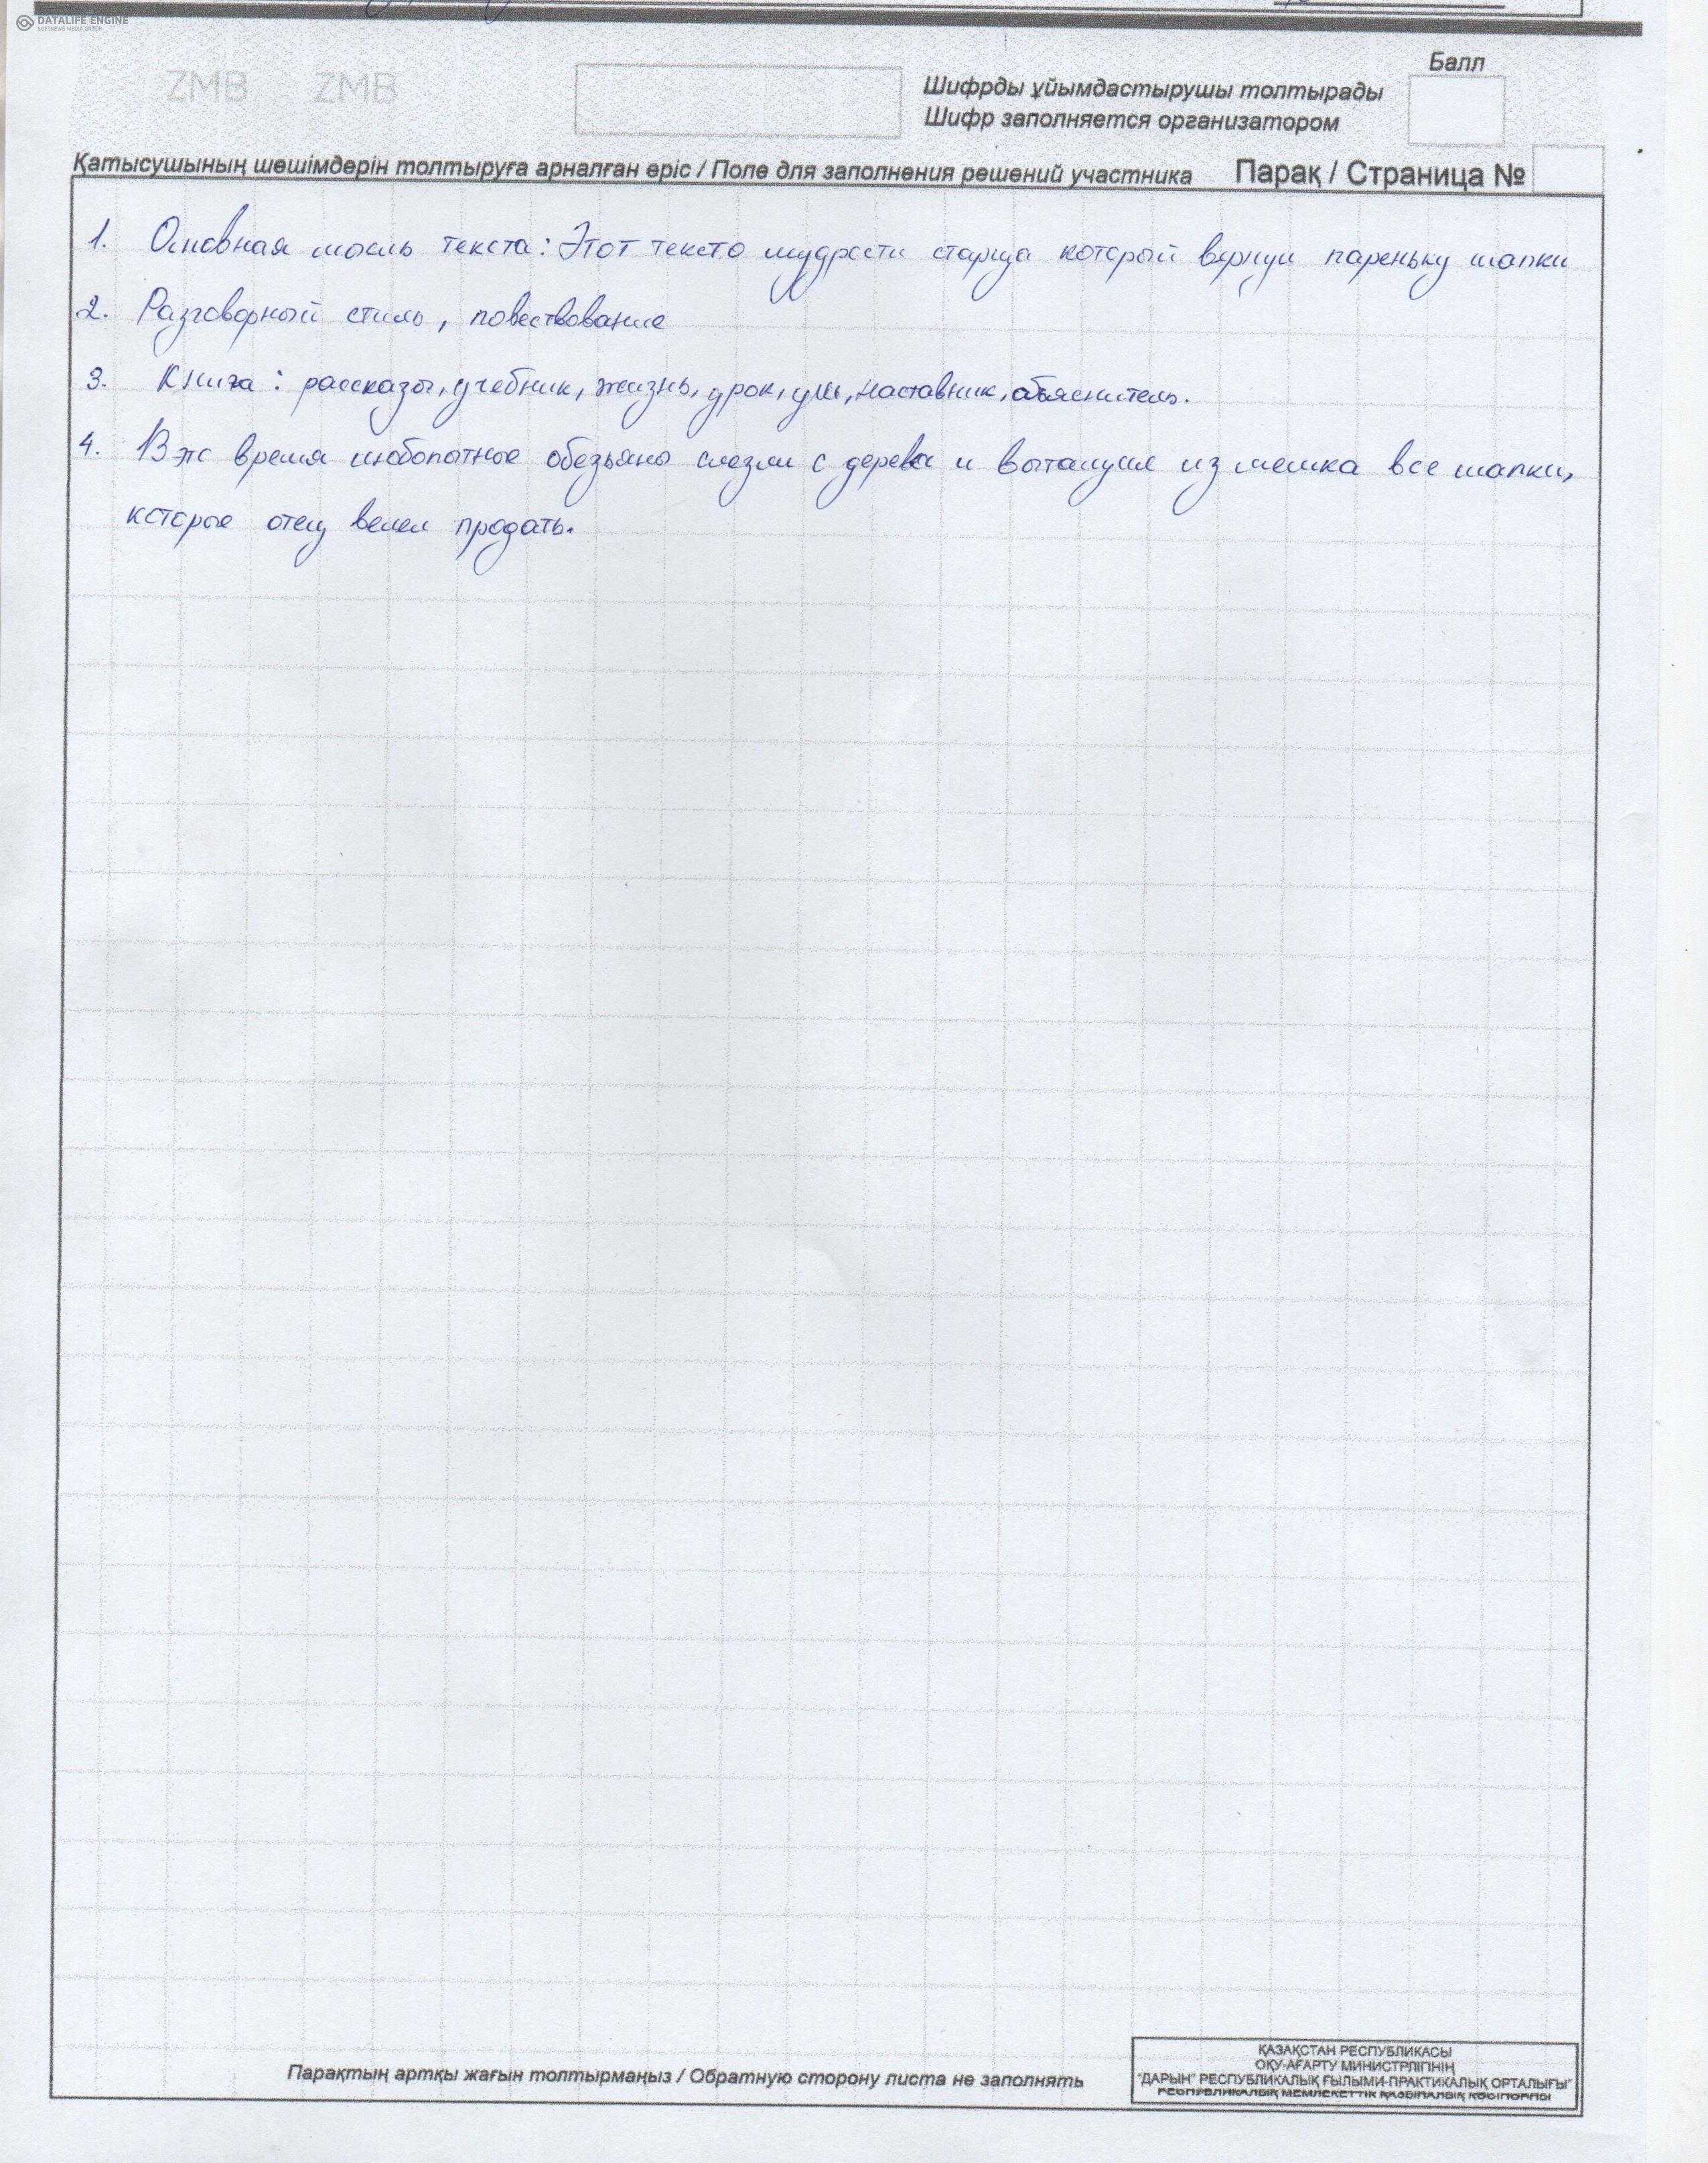 DATALIFE ENGINE
SOFTNEWS MEDIA GROUP
ZMB ZMB
Балл
Шифрды ұйымдастырушы толтырады
Шифр заполняется организатором
Қатысушының шешімдерін толтыруға арналған өріс / Поле для заполнения решений участника Парақ / Страница №
1. Основная мысль текста: Этот текст о мудрости старца который вернул пареньку шапки
2. Разговорный стиль, повествование
3. Книга: рассказы, учебник, жизнь, урок, ум, наставник, объяснитель.
4. В это время любопытные обезьяны слезли с дерева и вытащили из мешка все шапки,
которые отец велел продать.
Парақтың артқы жағын толтырмаңыз / Обратную сторону листа не заполнять
ҚАЗАҚСТАН РЕСПУБЛИКАСЫ
ОҚУ-АҒАРТУ МИНИСТРЛІГІНІҢ
"ДАРЫН" РЕСПУБЛИКАЛЫҚ ҒЫЛЫМИ-ПРАКТИКАЛЫҚ ОРТАЛЫҒЫ"
РЕСПУБЛИКАЛЫҚ МЕМЛЕКЕТТІК ҚАЗЫНАЛЫҚ КӘСІПОРНЫ